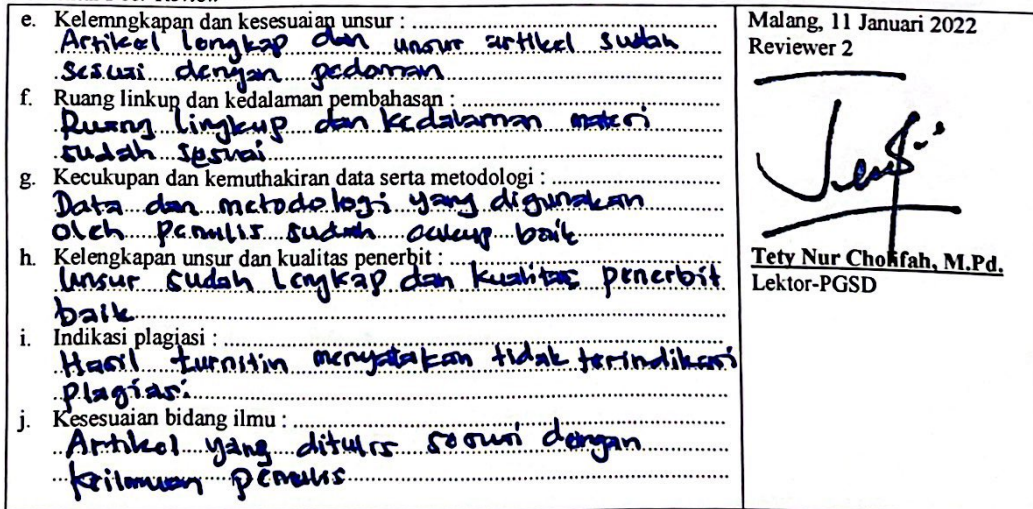 e. Kelemngkapan dan kesesuaian unsur :
Artikel lengkap dan unsur artikel sudah
sesuai dengan pedoman
f. Ruang linkup dan kedalaman pembahasan :
Ruang lingkup dan kedalaman materi
sudah sesuai
g. Kecukupan dan kemuthakiran data serta metodologi :
Data dan metodologi yang digunakan
oleh penulis sudah cukup baik
h. Kelengkapan unsur dan kualitas penerbit :
Unsur sudah lengkap dan kualitas penerbit
baik
i. Indikasi plagiasi :
Hasil turnitin menyatakan tidak terindikasi
plagiasi
j. Kesesuaian bidang ilmu :
Artikel yang ditulis sesuai dengan
keilmuan penulis
Malang, 11 Januari 2022
Reviewer 2
Tety Nur Cholifah, M.Pd.
Lektor-PGSD